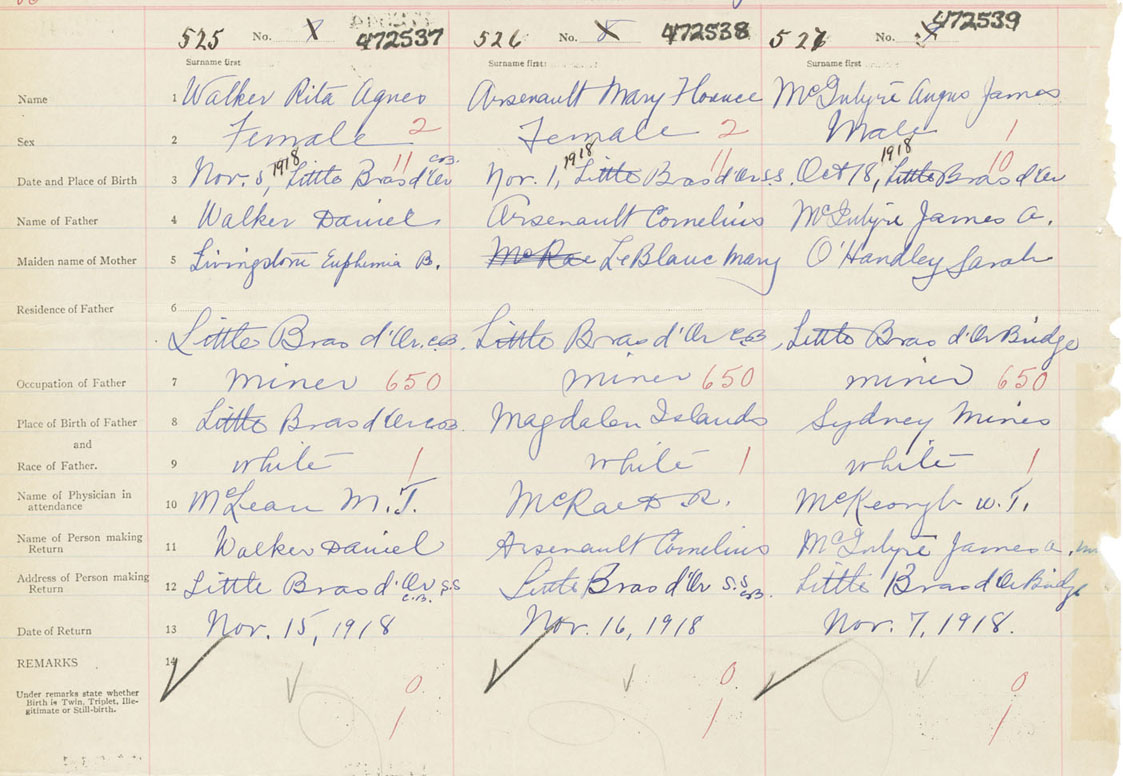 525 No. 472537 526 No. 8 472538 527 No. 472539
Surname first Surname first Surname first
Name 1 Walker Rita Agnes Arsenault Mary Florence McIntyre Angus James
Sex 2 Female 2 Female 2 Male 1
Date and Place of Birth 3 Nov. 8, 1918 Little Bras d'Or C.B. 11 Nov. 1, 1918 Little Bras d'Or S.S. 11 Oct 18, 1918 Little Bras d'Or 10
Name of Father 4 Walker Daniel Arsenault Cornelius McIntyre James A.
Maiden name of Mother 5 Livingstone Euphemia B. McRae LeBlanc Mary O'Handley Sarah
Residence of Father 6
Little Bras d'Or. C.B. Little Bras d'Or C.B. Little Bras d'Or Bridge
Occupation of Father 7 miner 650 miner 650 miner 650
Place of Birth of Father 8 Little Bras d'Or C.B. Magdalen Islands Sydney Mines
and
Race of Father. 9 white 1 white 1 white 1
Name of Physician in
attendance 10 McLean M.T. McRae D R. McKeough W.T.
Name of Person making
Return 11 Walker Daniel Arsenault Cornelius McIntyre James A.
Address of Person making
Return 12 Little Bras d'Or S.S C.B. Little Bras d'Or S.S C.B. Little Bras d'Or Bridge
Date of Return 13 Nov. 15, 1918 Nov. 16, 1918 Nov. 7, 1918.
REMARKS 14
Under remarks state whether
Birth is Twin, Triplet, Ille-
gitimate or Still-birth.
0 0 0
1 1 1